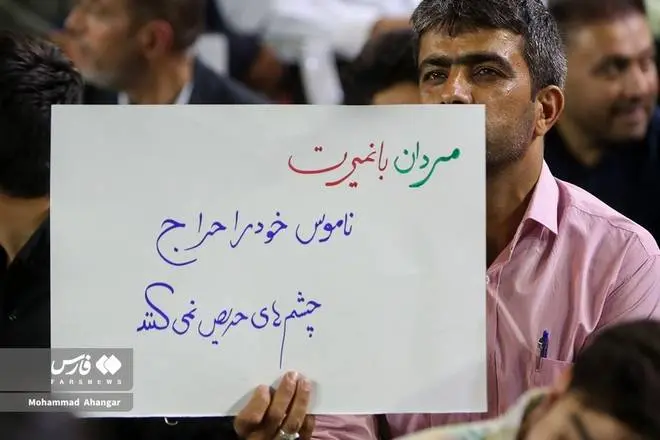 مردان باغیرت
ناموس خود را حراج
چشم‌های حریص نمی‌کنند
فارس
FARSNEWS
Mohammad Ahangar